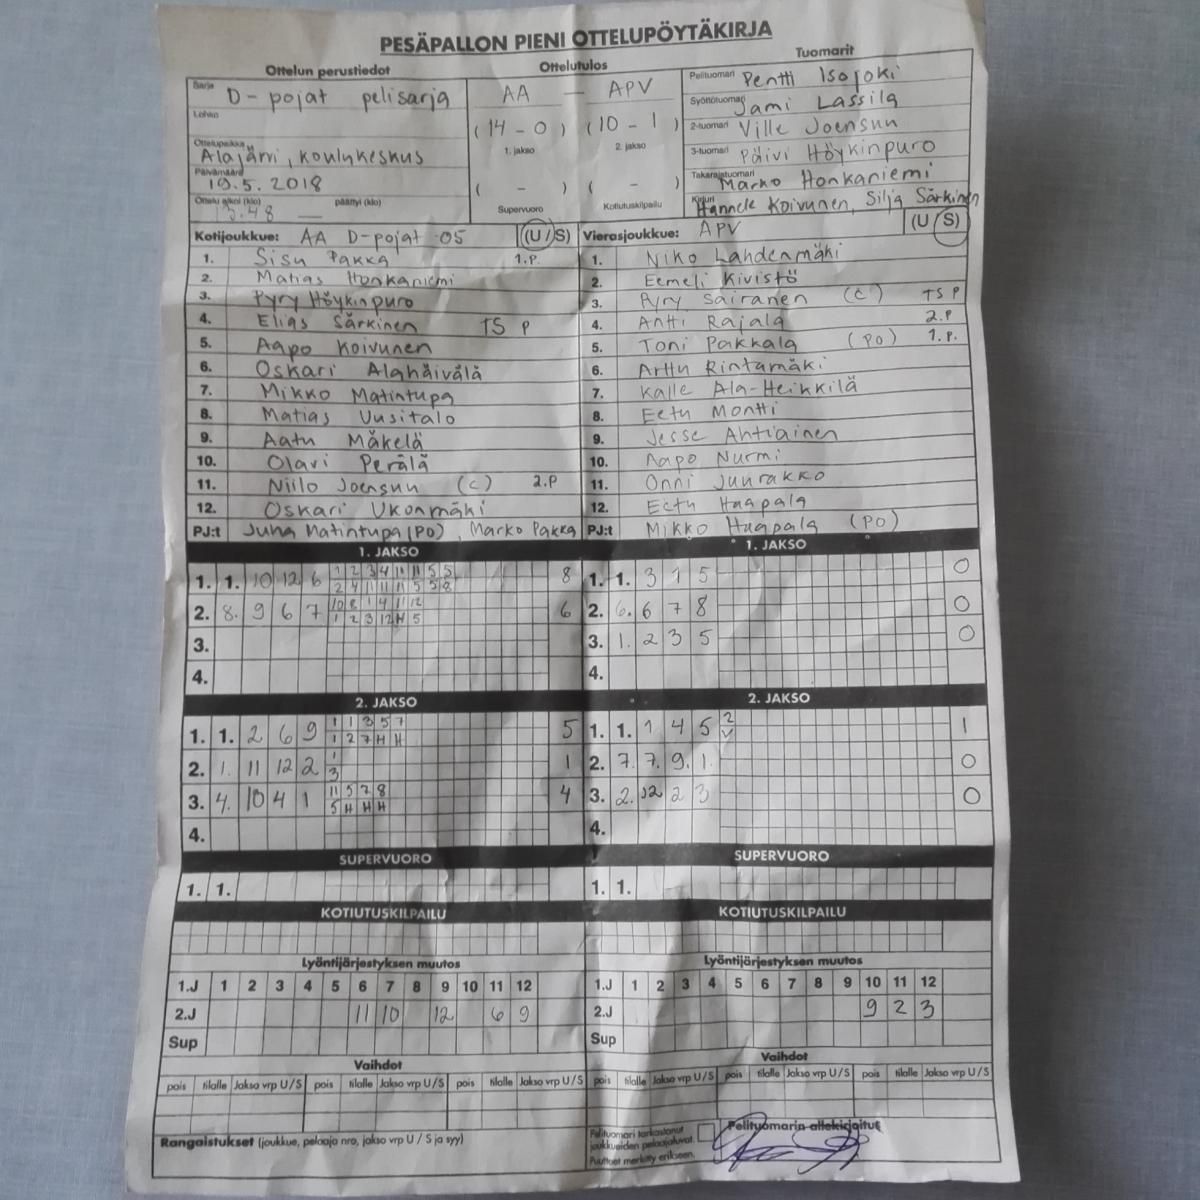 PESÄPALLON PIENI OTTELUPÖYTÄKIRJA
Ottelun perustiedot
Sarja D-pojat pelisarja
Lohko
Ottelupaikka Alajärvi, koulukeskus
Päivämäärä 19.5.2018
Ottelu alkoi (klo) 13.48 päättyi (klo) —
Ottelutulos
AA - APV
(14 - 0) (10 - 1)
1. jakso 2. jakso
( - ) ( - )
Supervuoro Kotiutuskilpailu
Tuomarit
Pelituomari Pentti Isojoki
Syöttötuomari Jami Lassila
2-tuomari Ville Joensuu
3-tuomari Päivi Höykinpuro
Takarajatuomari Marko Honkaniemi
Kirjuri Hannele Koivunen, Silja Särkinen
Kotijoukkue: AA D-pojat 05 (U/S)
1. Sisu Pakka 1.P.
2. Matias Honkaniemi
3. Pyry Höykinpuro
4. Elias Särkinen TS P
5. Aapo Koivunen
6. Oskari Alahäivälä
7. Mikko Matintupa
8. Matias Uusitalo
9. Aatu Mäkelä
10. Olavi Perälä
11. Niilo Joensuu (C) 2.P
12. Oskari Ukonmäki
PJ:t Juha Matintupa (PO), Marko Pakka
Vierasjoukkue: APV (U/S)
1. Niko Lahdenmäki
2. Eemeli Kivistö
3. Pyry Sairanen (C) TS P
4. Antti Rajala 2.P
5. Toni Pakkala (PO) 1.P.
6. Arttu Rintamäki
7. Kalle Ala-Heikkilä
8. Eetu Montti
9. Jesse Ahtiainen
10. Aapo Nurmi
11. Onni Juurakko
12. Eetu Haapala
PJ:t Mikko Haapala (PO)
1. JAKSO
1. 1. 10 12 6 8
2. 8. 9 6 7 6
3.
4.
1. JAKSO
1. 1. 3 1 5 0
2. 6. 6 7 8 0
3. 1. 2 3 5 0
4.
2. JAKSO
1 1 3 5 7
1. 1. 2 6 9 1 2 7 H H 5
1
2. 1. 11 12 2 3 1
11 5 7 8
3. 4. 10 4 1 5 H H H 4
4.
2. JAKSO
2
1. 1. 1 4 5 V 1
2. 7. 7. 9. 1. 0
3. 2. 12 2 3 0
4.
SUPERVUORO
1. 1.
SUPERVUORO
1. 1.
KOTIUTUSKILPAILU
KOTIUTUSKILPAILU
Lyöntijärjestyksen muutos
1.J 1 2 3 4 5 6 7 8 9 10 11 12
2.J 11 10 12 6 9
Sup
Lyöntijärjestyksen muutos
1.J 1 2 3 4 5 6 7 8 9 10 11 12
2.J 9 2 3
Sup
Vaihdot
pois tilalle Jakso vrp U/S pois tilalle Jakso vrp U/S pois tilalle Jakso vrp U/S
Vaihdot
pois tilalle Jakso vrp U/S pois tilalle Jakso vrp U/S pois tilalle Jakso vrp U/S
Rangaistukset (joukkue, pelaaja nro, jakso vrp U / S ja syy)
Pelituomari tarkastanut
joukkueiden pelaajaluvat.
Puutteet merkitty erikseen.
Pelituomarin allekirjoitus